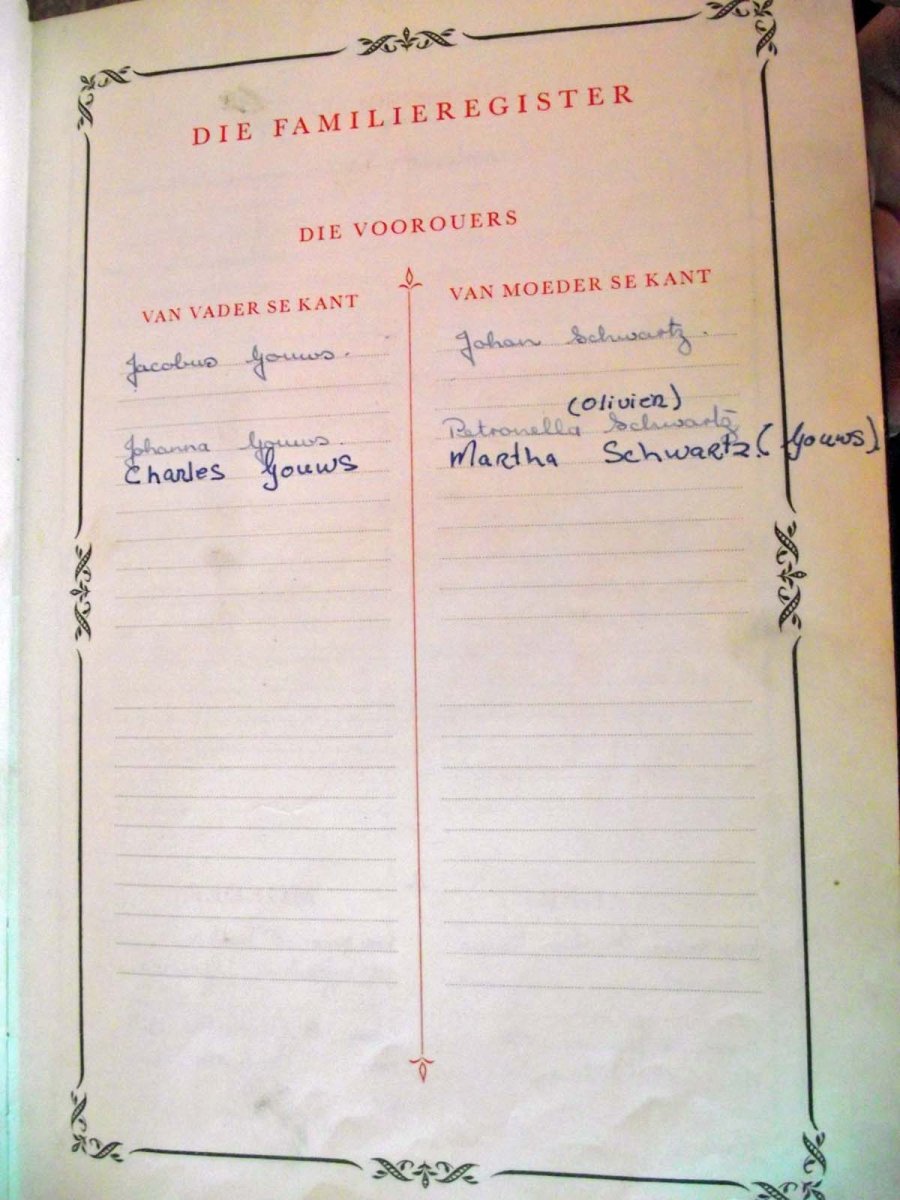 DIE FAMILIEREGISTER
DIE VOOROUERS
VAN VADER SE KANT
Jacobus Gouws.
Johanna Gouws.
Charles Gouws
VAN MOEDER SE KANT
Johan Schwartz.
(Olivier)
Petronella Schwartz
Martha Schwartz. (Gouws).